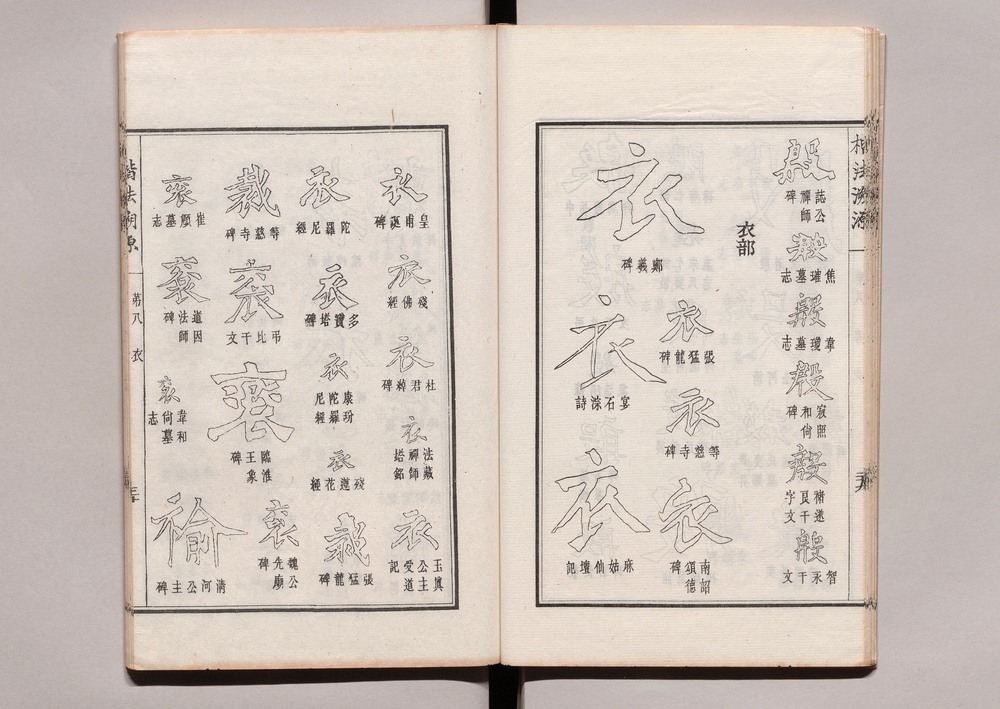 楷法溯源
殷
誌公禪師碑
殷
焦璀墓志
殷
韋瓊墓志
殷
寂照和尙碑
殷
褚遂良千字文
殷
智永千文
衣部
衣
鄭羲碑
衣
張猛龍碑
衣
等慈寺碑
衣
南詔德頌碑
衣
宴石淙詩
衣
麻姑仙壇記
衣
皇甫誕碑
衣
殘佛經
衣
杜君綽碑
衣
法藏禪師塔銘
衣
玉眞公主受道記
衣
陀羅尼經
衣
多寶塔碑
衣
康玢陀羅尼經
衣
殘蓮花經
裁
張猛龍碑
裁
等慈寺碑
弔比干文
臨淮王象碑
魏公先廟碑
崔頠墓志
道因法師碑
韋和尙墓志
褕
淸河公主碑
楷法溯源
第八 衣